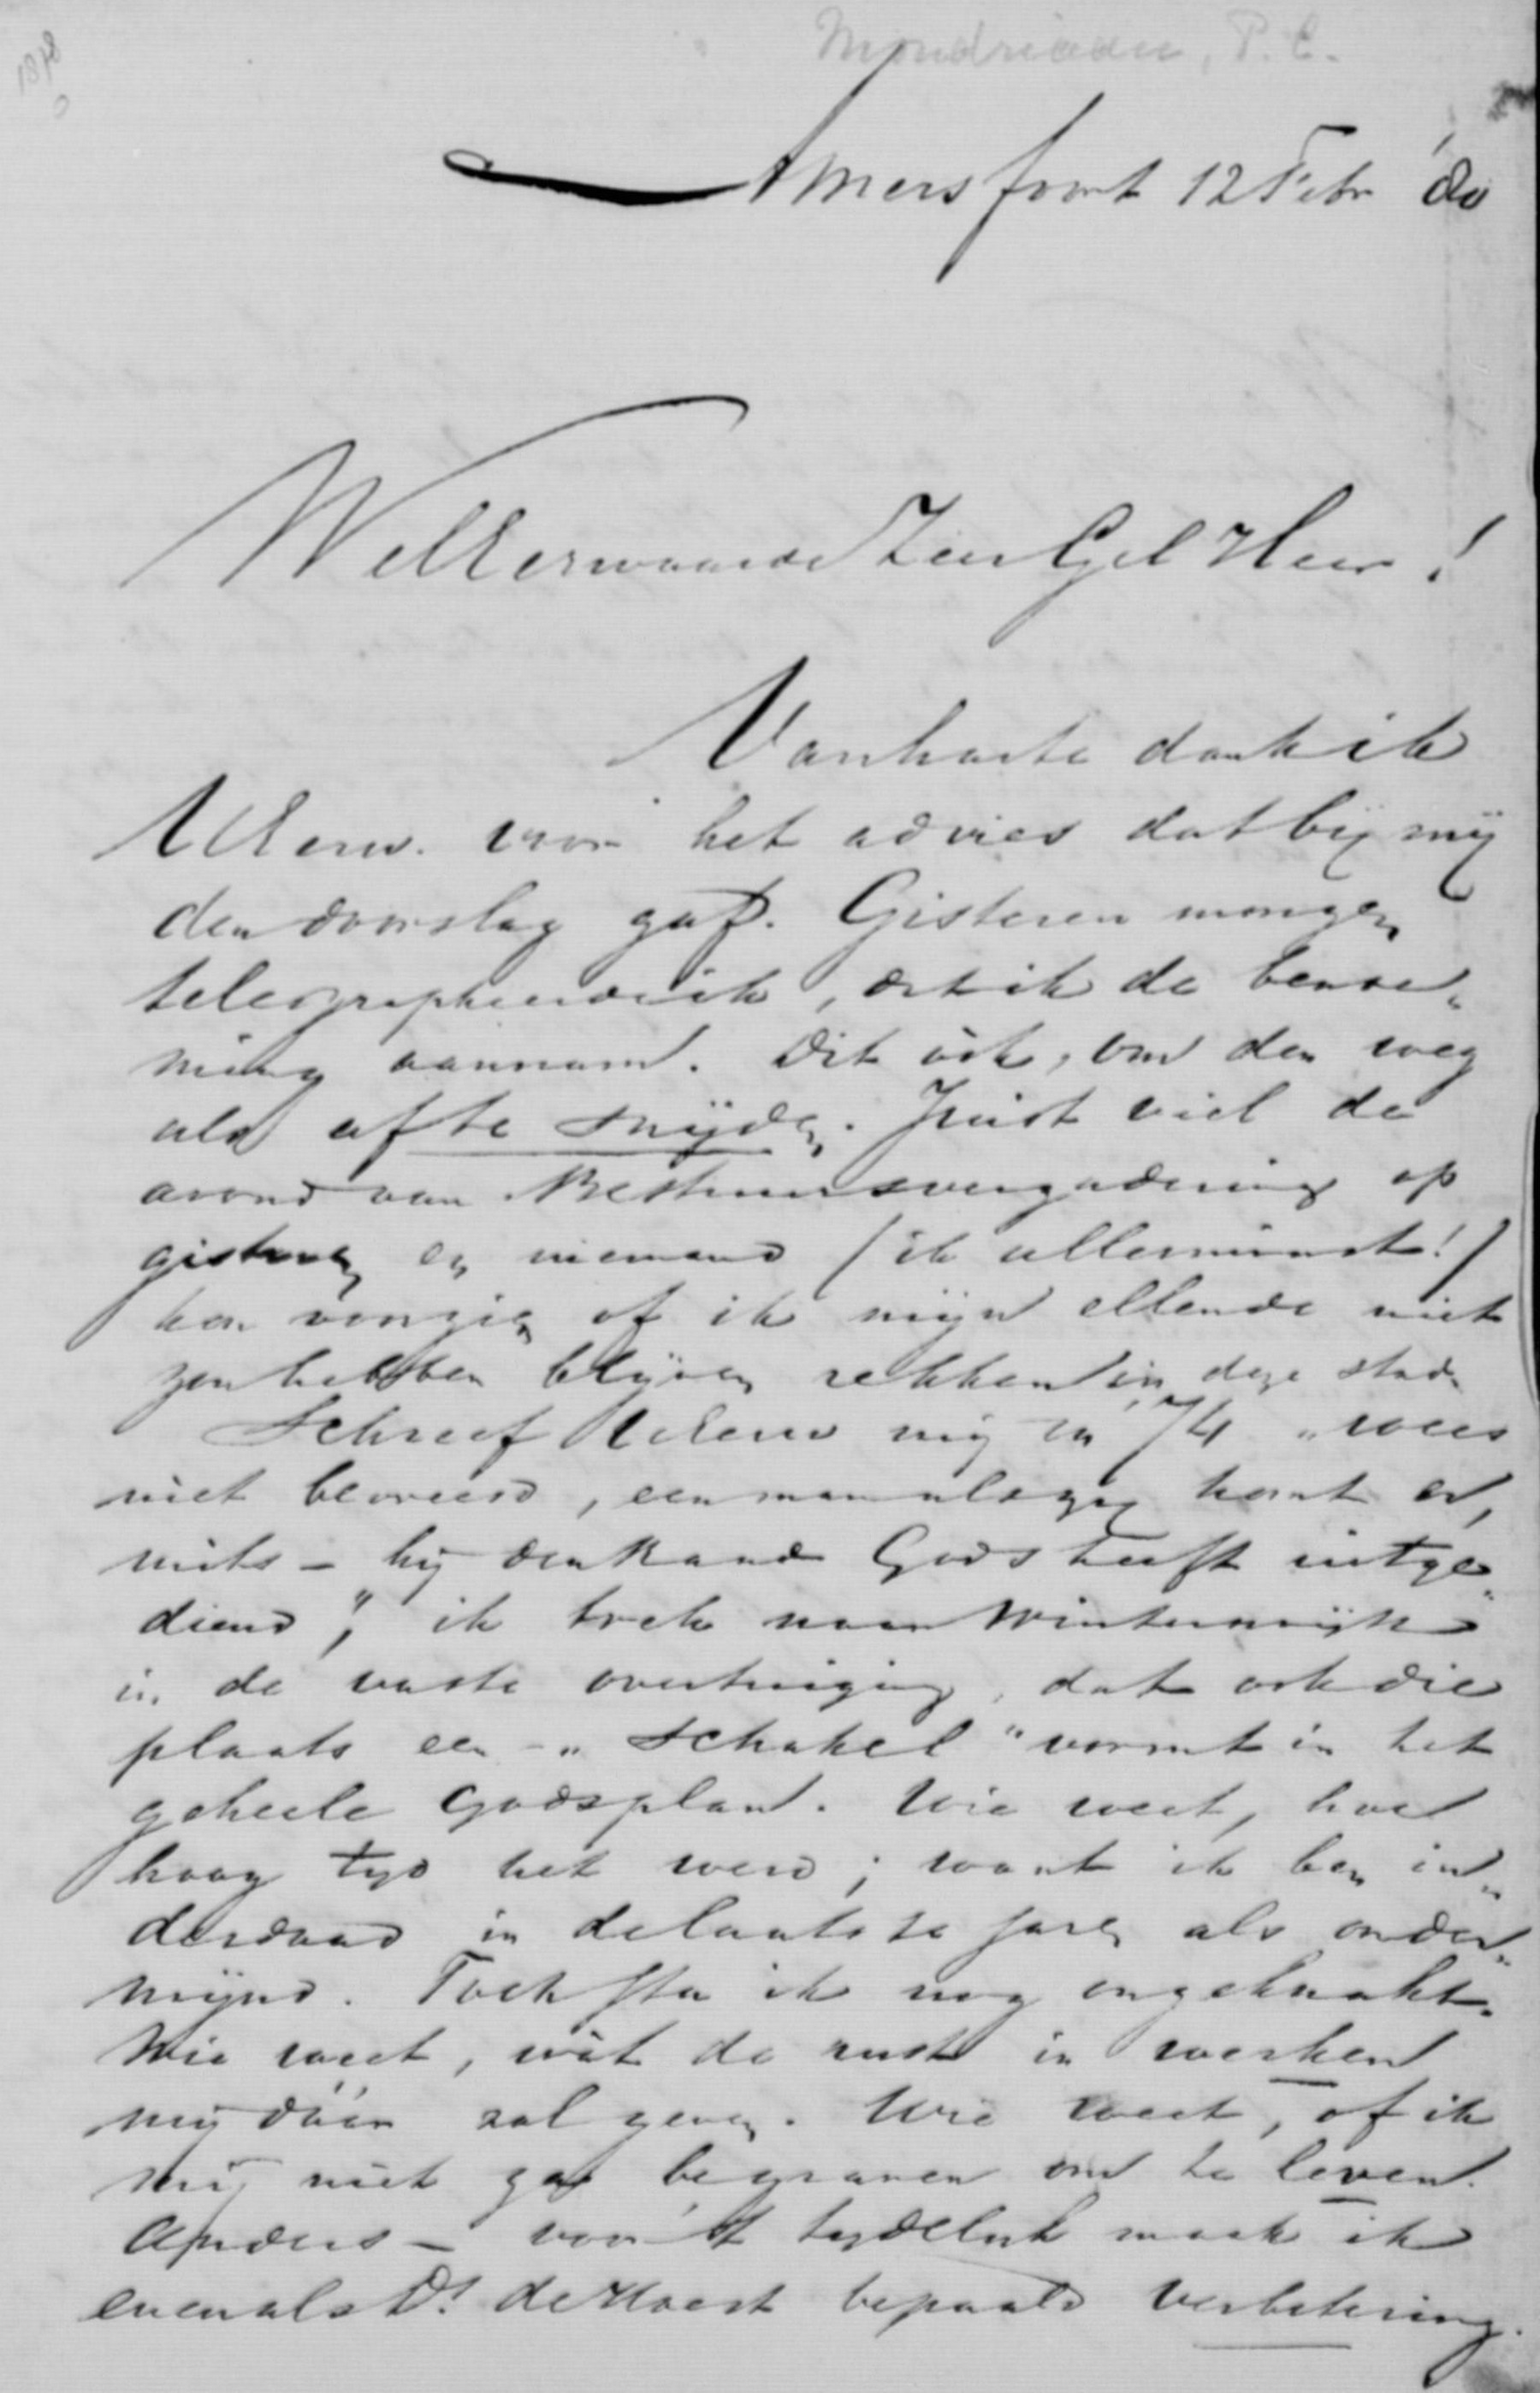 1878
Mondriaan, P. C.
Amersfoort 12 Febr '80
WelEerwaarde Zeer Gel Heer!
Van harte dank ik
UEerw. voor het advies dat bij mij
den doorslag gaf. Gisteren morgen
telegrapheerde ik, dat ik de benoe„
ming aannam. Dit ook, om den weg
als af te snijden. Juist viel de
avond van Bestuursvergadering op
gisteren en niemand (ik allerminst!)
kon voorzien of ik mijn ellende niet
zou hebben blijven rekken in deze stad.
Schreef UEerw mij in '74 „wees
niet bevreesd, een man
mits – hij den Raad Gods heeft uitge„
diend”, ik trek naar Winterswijk
in de vaste overtuiging, dat ook die
plaats een – „Schakel” vormt in het
geheele Godsplan. Wie weet, hoe
hoog tijd het werd; want ik ben in„
derdaad in de laatste jaren als onder„
mijnd. Toch sta ik nog ongeknakt.
Wie weet, wát de rust in werken
mij dáár zal geven. Wie weet, of ik
mij niet ga begraven om te leven.
Anders – voor 't tijdelijk maak ik
evenals Ds. de Hoest bepaald verbetering.